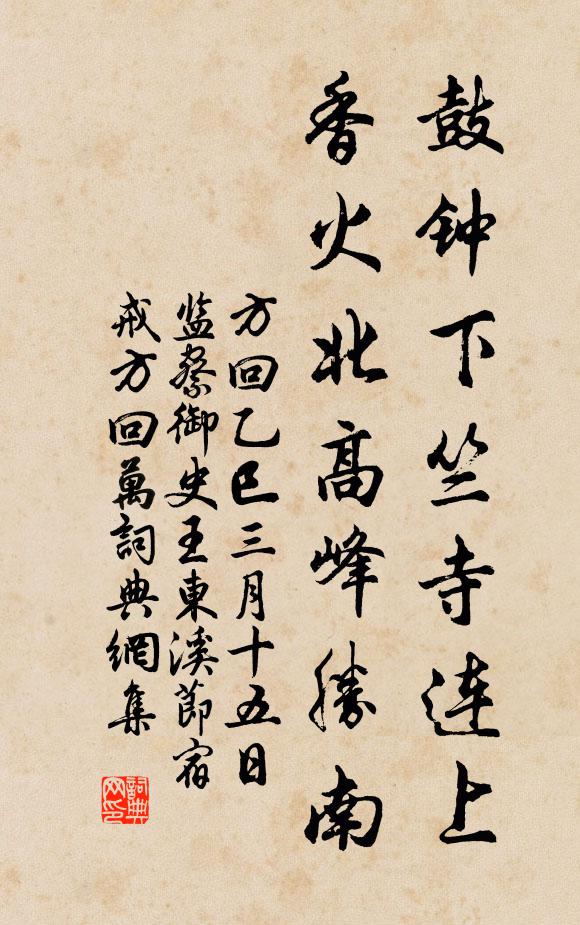 鼓钟下竺寺连上
香火北高峰勝南
方回乙巳三月十五日
监察御史王東溪節宿
戒方回萬詞典網集
詞典网印